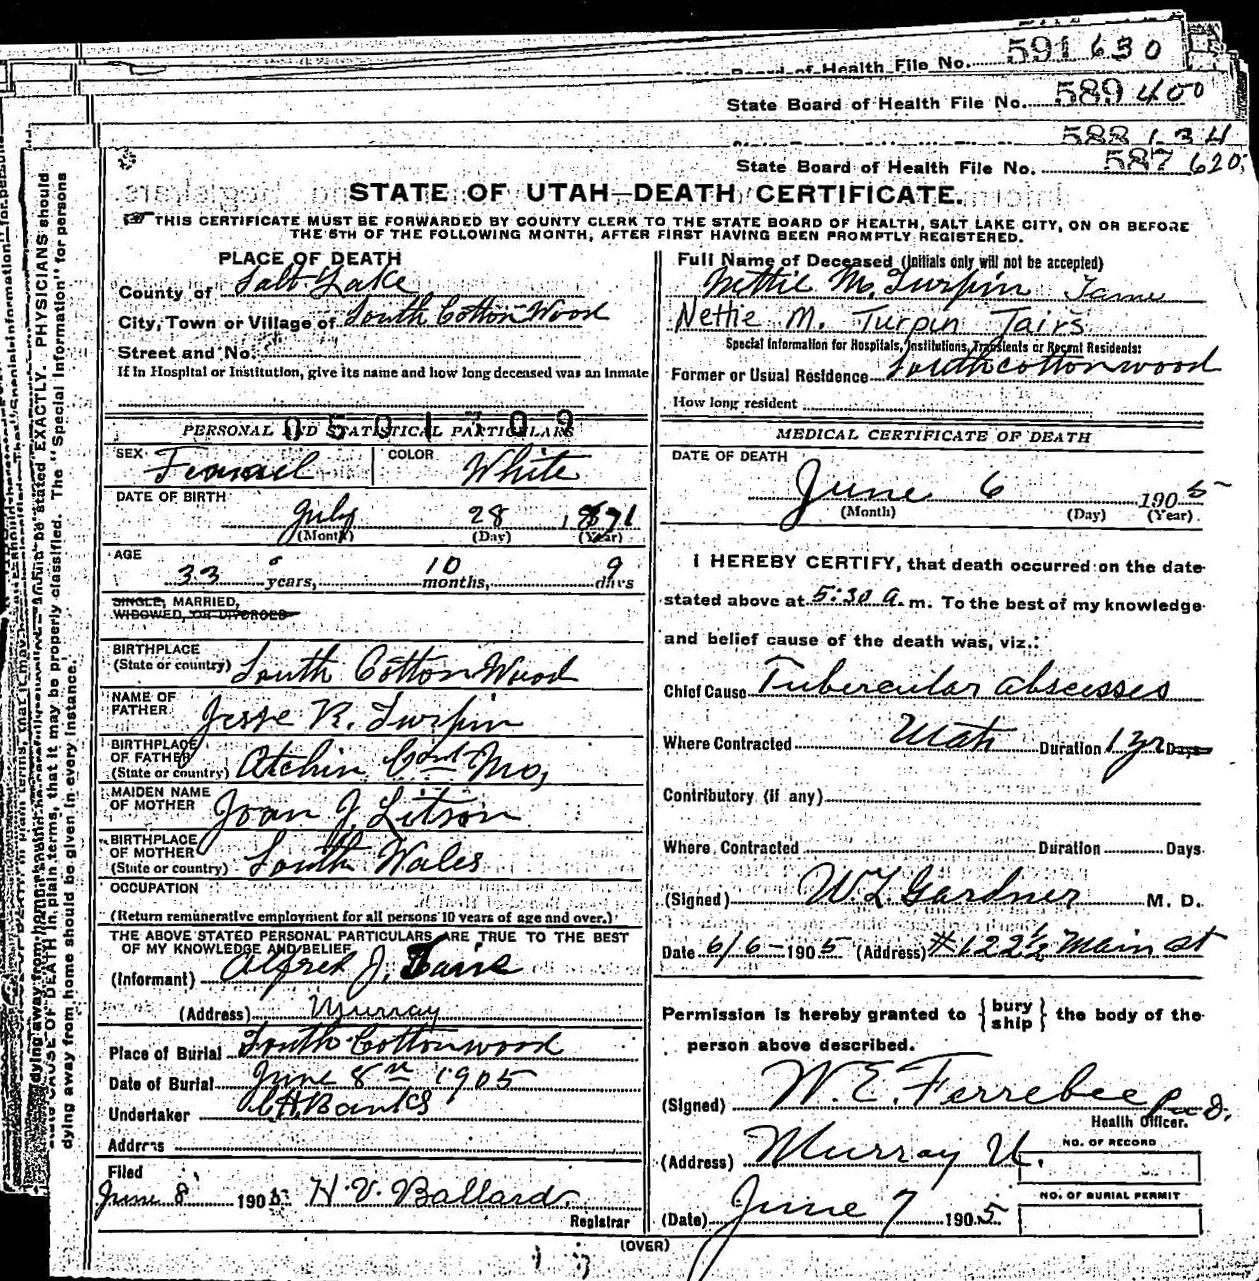 591 630
Board of Health File No.
State Board of Health File No. 589 400
588 134
State Board of Health File No. 587 620
STATE OF UTAH—DEATH CERTIFICATE.
THIS CERTIFICATE MUST BE FORWARDED BY COUNTY CLERK TO THE STATE BOARD OF HEALTH, SALT LAKE CITY, ON OR BEFORE
THE 5TH OF THE FOLLOWING MONTH, AFTER FIRST HAVING BEEN PROMPTLY REGISTERED.
PLACE OF DEATH
County of Salt Lake
City, Town or Village of South Cotton Wood
Street and No.
If in Hospital or Institution, give its name and how long deceased was an Inmate
0501709
PERSONAL AND STATISTICAL PARTICULARS
SEX Femael COLOR White
DATE OF BIRTH
July 28 1871
(Month) (Day) (Year)
AGE
33 years, 10 months, 9 days
SINGLE, MARRIED,
WIDOWED, OR DIVORCED
BIRTHPLACE
(State or country) South Cotton Wood
NAME OF
FATHER Jesse R. Turpin
BIRTHPLACE
OF FATHER
(State or country) Atchin Cont Mo,
MAIDEN NAME
OF MOTHER Joan J. Litson
BIRTHPLACE
OF MOTHER
(State or country) South Wales
OCCUPATION
(Return remunerative employment for all persons 10 years of age and over.)
THE ABOVE STATED PERSONAL PARTICULARS ARE TRUE TO THE BEST
OF MY KNOWLEDGE AND BELIEF
(Informant) Alfred J.
(Address) Murray
Place of Burial South Cottonwood
Date of Burial June 8th 1905
Undertaker Banks
Address
Filed
June 8 1905 H. V. Ballard
Registrar
Full Name of Deceased (Initials only will not be accepted)
Nettie M. Turpin
Nettie M. Turpin Tairs
Special Information for Hospitals, Institutions, Transients or Recent Residents:
Former or Usual Residence South cottonwood
How long resident
MEDICAL CERTIFICATE OF DEATH
DATE OF DEATH
June 6 1905
(Month) (Day) (Year)
I HEREBY CERTIFY, that death occurred on the date
stated above at 5:30 a. m. To the best of my knowledge
and belief cause of the death was, viz.:
Chief Cause Tubercular abscesses
Where Contracted Utah Duration 1 yr Days
Contributory (if any)
Where Contracted Duration Days
(Signed) W. L. Gardner M. D.
Date 6/6 1905 (Address) #122½ Main st
Permission is hereby granted to { bury ship } the body of the
person above described.
(Signed) W. E. Ferrebee
Health Officer.
(Address) Murray U.
NO. OF RECORD
NO. OF BURIAL PERMIT
(Date) June 7 1905
(OVER)
EXACTLY. PHYSICIANS should
CAUSE OF DEATH in plain terms, that it may be properly classified. The "Special Information" for persons
dying away from home should be given in every instance.